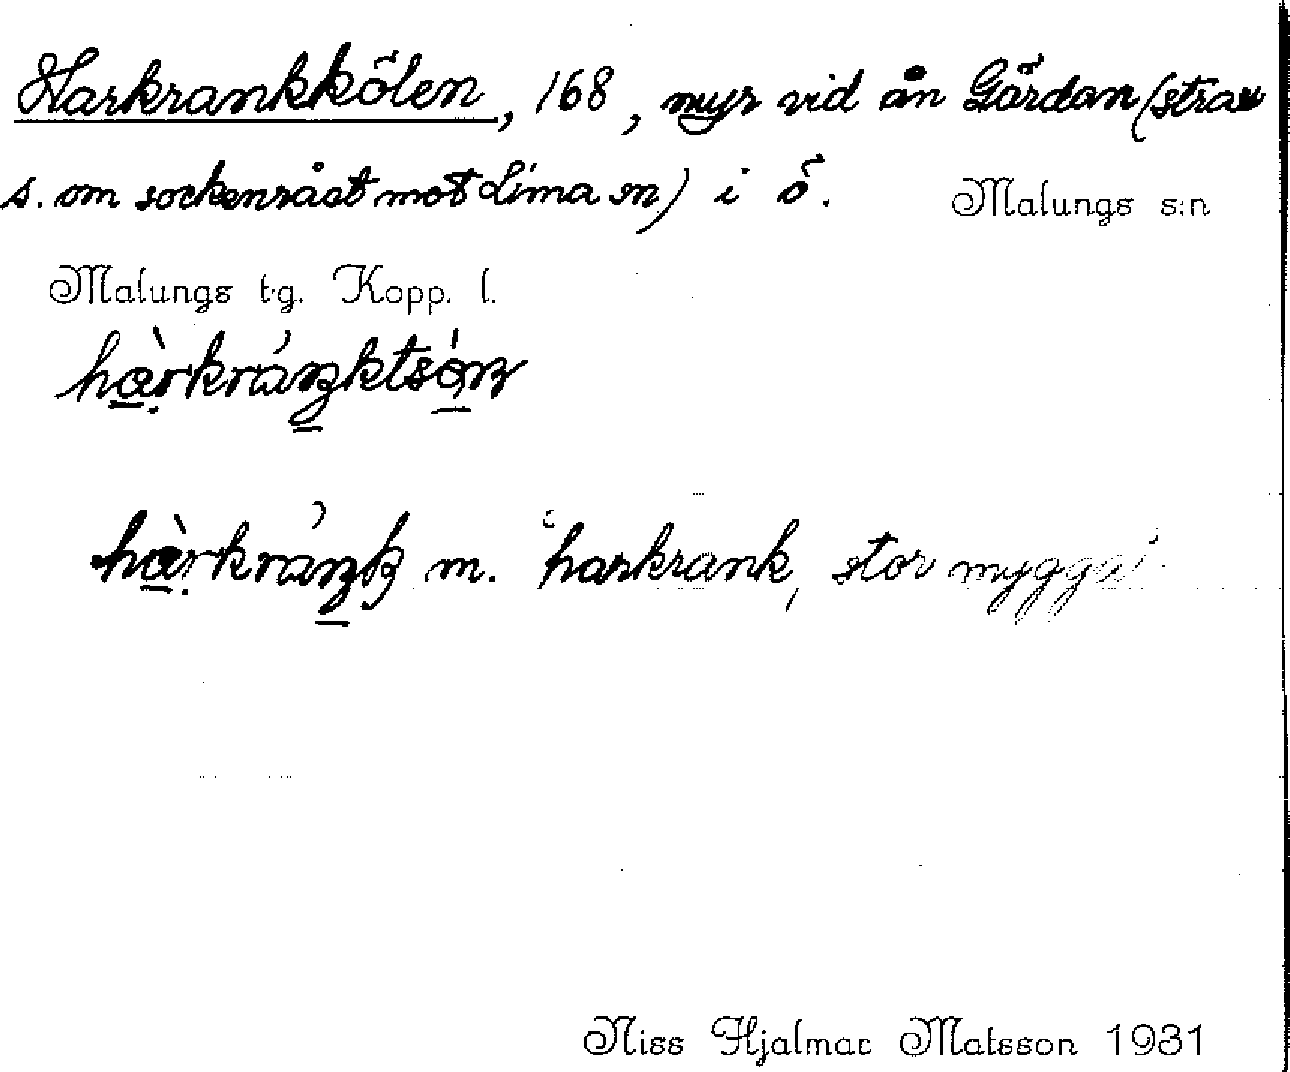 Harkrankkölen, 168, myr vid ån Gördan (strax
s. om sockenrået mot Lima sn) i ö. Malungs s:n
Malungs t.g. Kopp. l.
m. 'harkrank, stor mygga'
Niss Hjalmar Matsson 1931